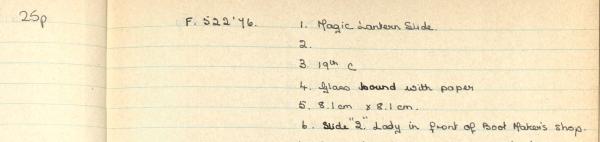 25p F. S22'76. 1. Magic Lantern Slide.
2.
3. 19th C
4. Glass bound with paper
5. 8.1cm x 8.1cm.
6. Slide "2." Lady in front of Boot Maker's shop.